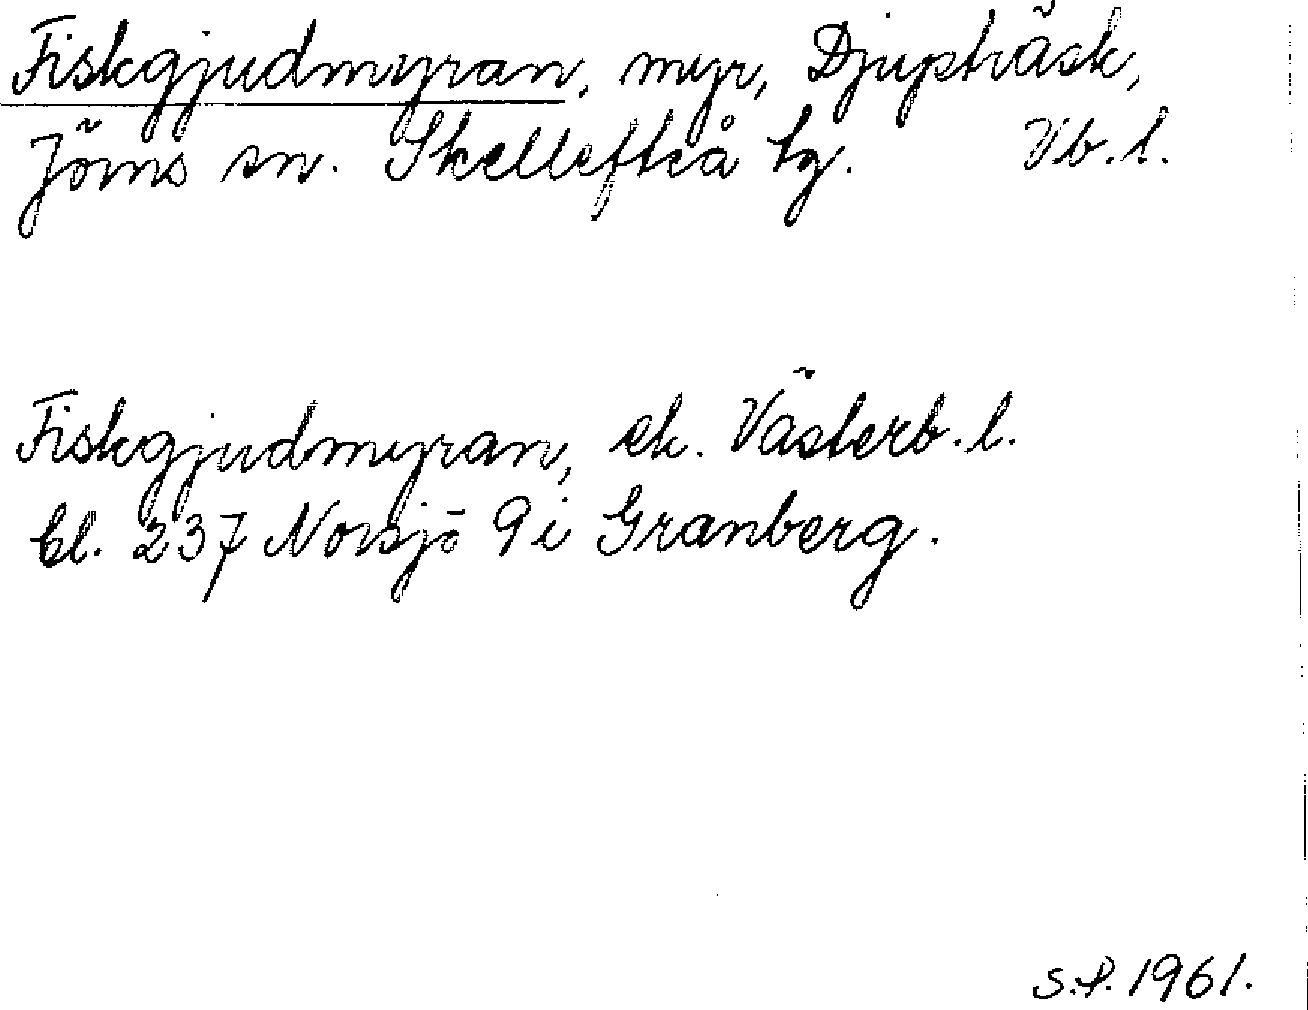 Fiskgjudmyran, myr, Djupträsk,
Jörns sn. Skellefteå tg. Vb. l.
Fiskgjudmyran, ek. Västerb. l.
bl. 237 Norsjö 9 i Granberg.
S.P. 1961.